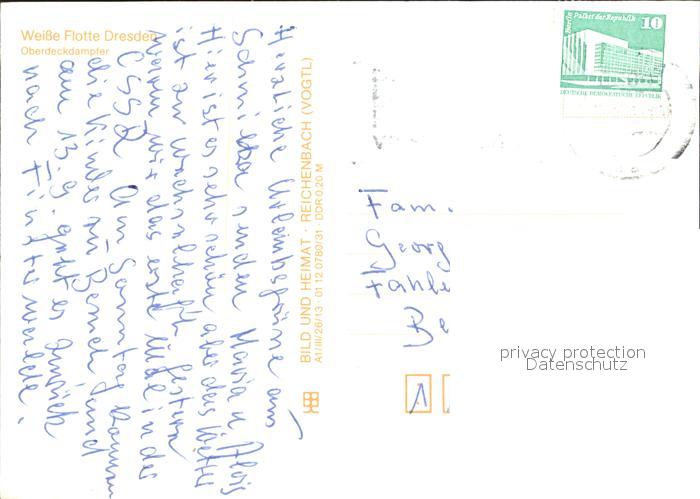 Weiße Flotte Dresden
Oberdeckdampfer
Herzliche Urlaubsgrüße aus
Schmilka senden Maria u. Alois
Hier ist es sehr schön aber das Wetter
ist zu wechselhaft. Gestern
waren wir das erste Mal in der
ČSSR. Am Sonntag kommen
die Kinder zu Besuch und
am 13.9. geht es zurück
nach Finsterwalde.
BILD UND HEIMAT · REICHENBACH (VOGTL)
A1/III/26/13 · 01 12 0780/31 DDR 0,20 M
Berlin Palast der Republik
10
DEUTSCHE DEMOKRATISCHE REPUBLIK
Fam.
Georg
1
privacy protection
Datenschutz